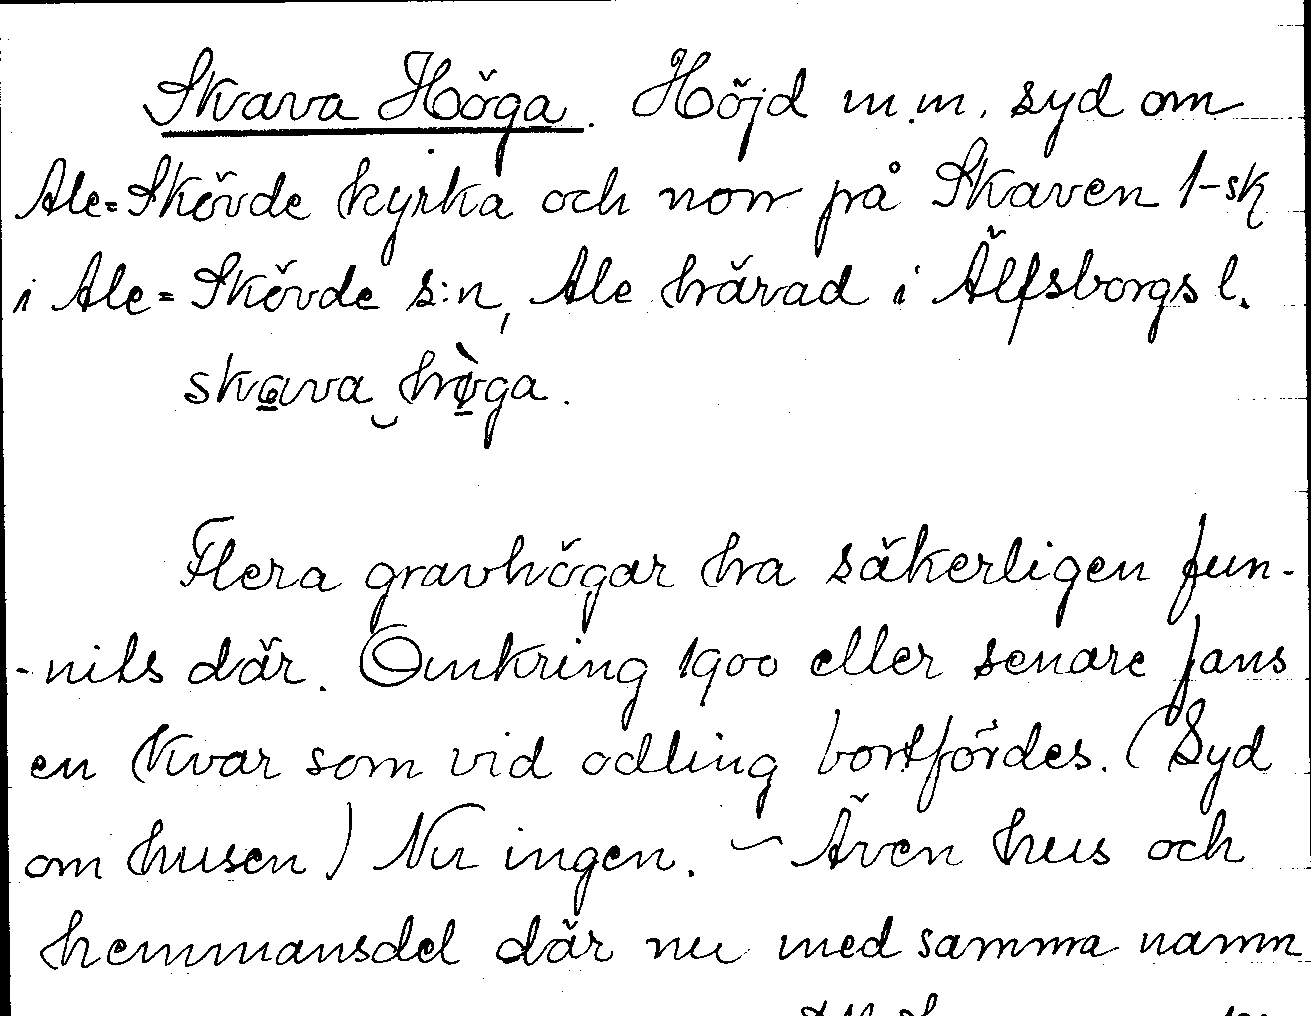 Skava Höga. Höjd m.m. syd om
Ale-Skövde kyrka och norr på Skaven 1-sk
i Ale-Skövde s:n, Ale härad i Älfsborgs l.
skava högа.
Flera gravhögar ha säkerligen fun-
-nits där. Omkring 1900 eller senare fans
en kvar som vid odling bortfördes. (Syd
om husen) Nu ingen. - Även hus och
hemmansdel där nu med samma namn